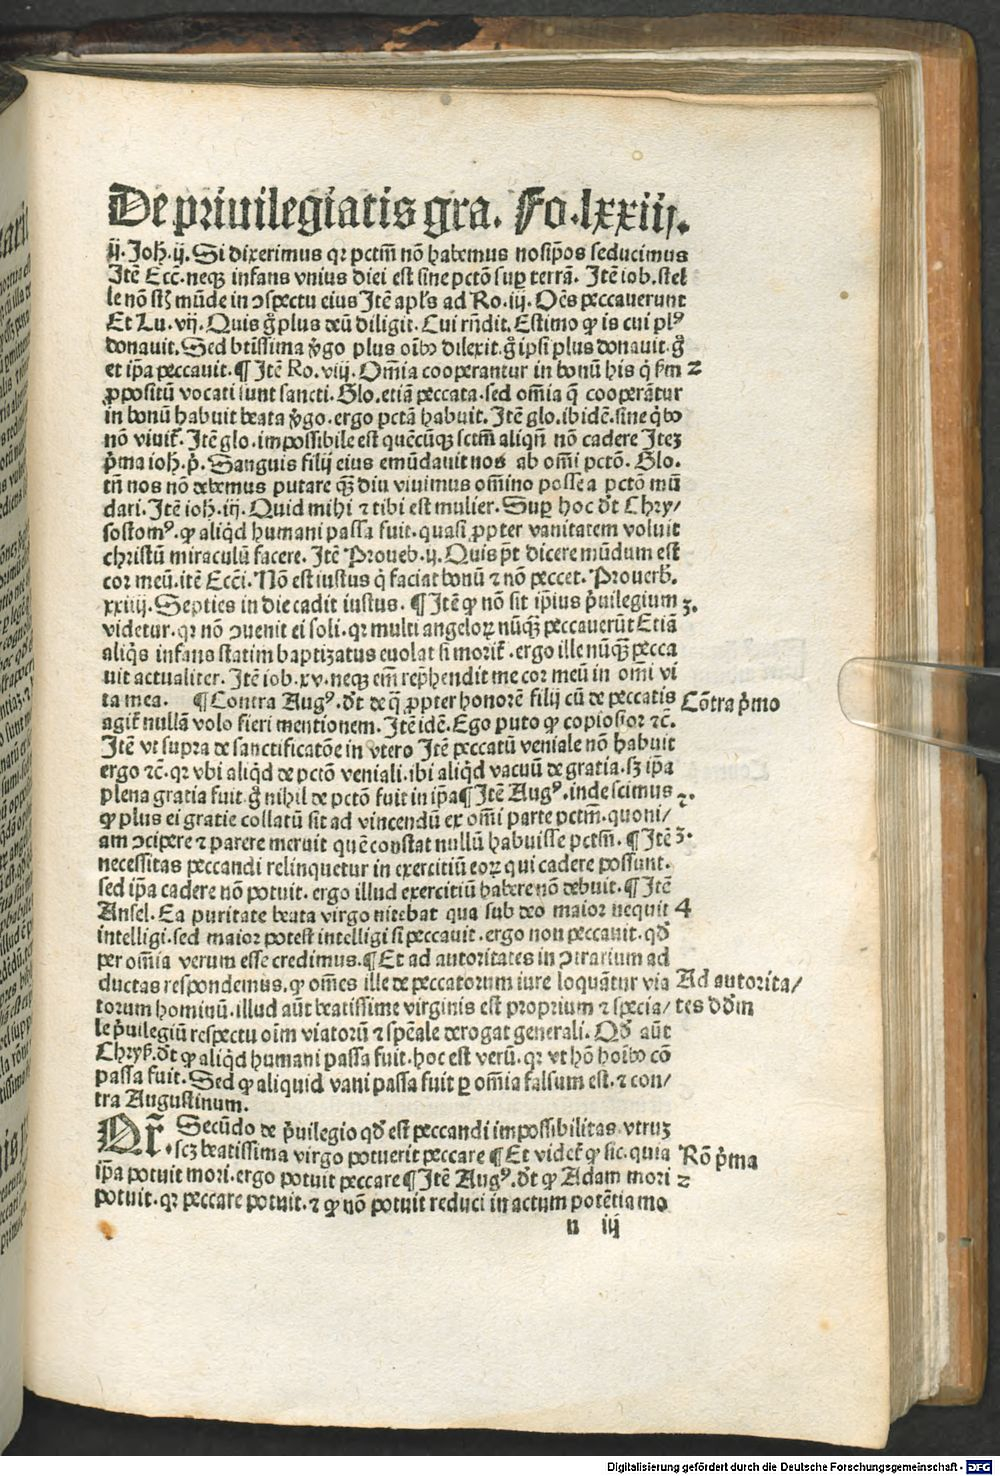 De priuilegiatis gra. Fo. lxxiij.
ij. Joh̄. ij. Si dixerimus qꝛ pctm̄ nō habemus nosip̄os seducimus
Itē Ecc̄. neqꝫ infans vnius diei est sine pctō suꝑ terrā. Itē iob. stel
le nō st̄ mūde in ↄspectu eius Itē apl's ad Ro. iij. Oēs peccauerunt
Et Lu. vij. Quis g̊ plus deū diligit. Cui rn̄dit. Estimo ꝙ is cui plꝰ
donauit. Sed btīssima v̊go plus oībꝰ dilexit. g̊ ipsi plus donauit. g̊
et ip̄a peccauit. ¶ Itē Ro. viij. Om̄ia cooperantur in bonū his q̇ ẜm 2
ꝓpositū vocati sunt sancti. Glo. etiā peccata. sed om̄ia q̄ cooperātur
in bonū habuit beata v̊go. ergo pctā habuit. Itē glo. ibidē. sine q̇bꝰ
nō viuit᷑. Itē glo. impossibile est quēcūqꝫ sctm̄ aliqn̄ nō cadere Iteꝫ
p̊ma ioh̄. p̊. Sanguis filij eius emūdauit nos ab om̄i pctō. Glo.
tn̄ nos nō debemus putare qꝫdiu viuimus om̄ino posse a pctō mū
dari. Itē ioh̄. iij. Quid mihi ⁊ tibi est mulier. Suꝑ hoc dt̄ Chry/
sostomꝰ. ꝙ aliq̇d humani passa fuit. quasi ꝓpter vanitatem voluit
christū miraculū facere. Itē Proueb. ij. Quis pt̄ dicere mūdum est
cor meū. itē Ecc̄i. Nō est iustus q̇ faciat bonū ⁊ nō peccet. Prouerb̄.
xxiiij. Septies in die cadit iustus. ¶ Itē ꝙ nō sit ip̄ius p̊uilegium 3.
videtur. qꝛ nō ↄuenit ei soli. qꝛ multi angeloꝝ nūqꝫ peccauerūt Etiā
aliq̇s infans statim baptizatus euolat si morit᷑. ergo ille nūqꝫ pecca
uit actualiter. Itē iob. xv. neqꝫ em̄ rep̄hendit me cor meū in om̄i vi
ta mea. ¶ Contra Augꝰ. dt̄ de q̄ ꝓpter honorē filij cū de peccatis Cōtra p̊mo
agit᷑ nullā volo fieri mentionem. Itē idē. Ego puto ꝙ copiosior ⁊c̄.
Itē vt supra de sanctificatōe in vtero Itē peccatū veniale nō habuit
ergo ⁊c̄. qꝛ vbi aliq̇d de pctō veniali. ibi aliq̇d vacuū de gratia. sꝫ ip̄a
plena gratia fuit. g̊ nihil de pctō fuit in ip̄a ¶ Itē Augꝰ. inde scimus 2.
ꝙ plus ei gratie collatū sit ad vincendū ex om̄i parte pctm̄. quoni/
am ↄcipere ⁊ parere meruit quē constat nullū habuisse pctm̄. ¶ Itē 3.
necessitas peccandi relinquetur in exercitiū eoꝝ qui cadere possunt.
sed ip̄a cadere nō potuit. ergo illud exercitiū habere nō debuit. ¶ Itē
Ansel. Ea puritate beata virgo nitebat qua sub deo maior nequit 4
intelligi. sed maior potest intelligi si peccauit. ergo non peccauit. qd̄
per om̄ia verum esse credimus. ¶ Et ad autoritates in ↄtrarium ad
ductas respondemus. ꝙ om̄es ille de peccatorum iure loquātur via Ad autorita/
torum hominū. illud aūt beatissime virginis est proprium ⁊ specia/ tes dd̄m
le p̊uilegiū respectu oīm viatorū ⁊ spēale derogat generali. Qd̄ aūt
Chryẜ. dt̄ ꝙ aliq̇d humani passa fuit. hoc est verū. qꝛ vt hō hoībꝰ cō
passa fuit. Sed ꝙ aliquid vani passa fuit ꝑ om̄ia falsum est. ⁊ con/
tra Augustinum.
Qr̄. Secūdo de p̊uilegio qd̄ est peccandi impossibilitas. vtruꝫ
scꝫ beatissima virgo potuerit peccare ¶ Et videt᷑ ꝙ sic. quia Rō p̊ma
ip̄a potuit mori. ergo potuit peccare ¶ Itē Augꝰ. dt̄ ꝙ Adam mori 2
potuit. qꝛ peccare potuit. ⁊ ꝙ nō potuit reduci in actum potētia mo
n iij
Digitalisierung gefördert durch die Deutsche Forschungsgemeinschaft - DFG